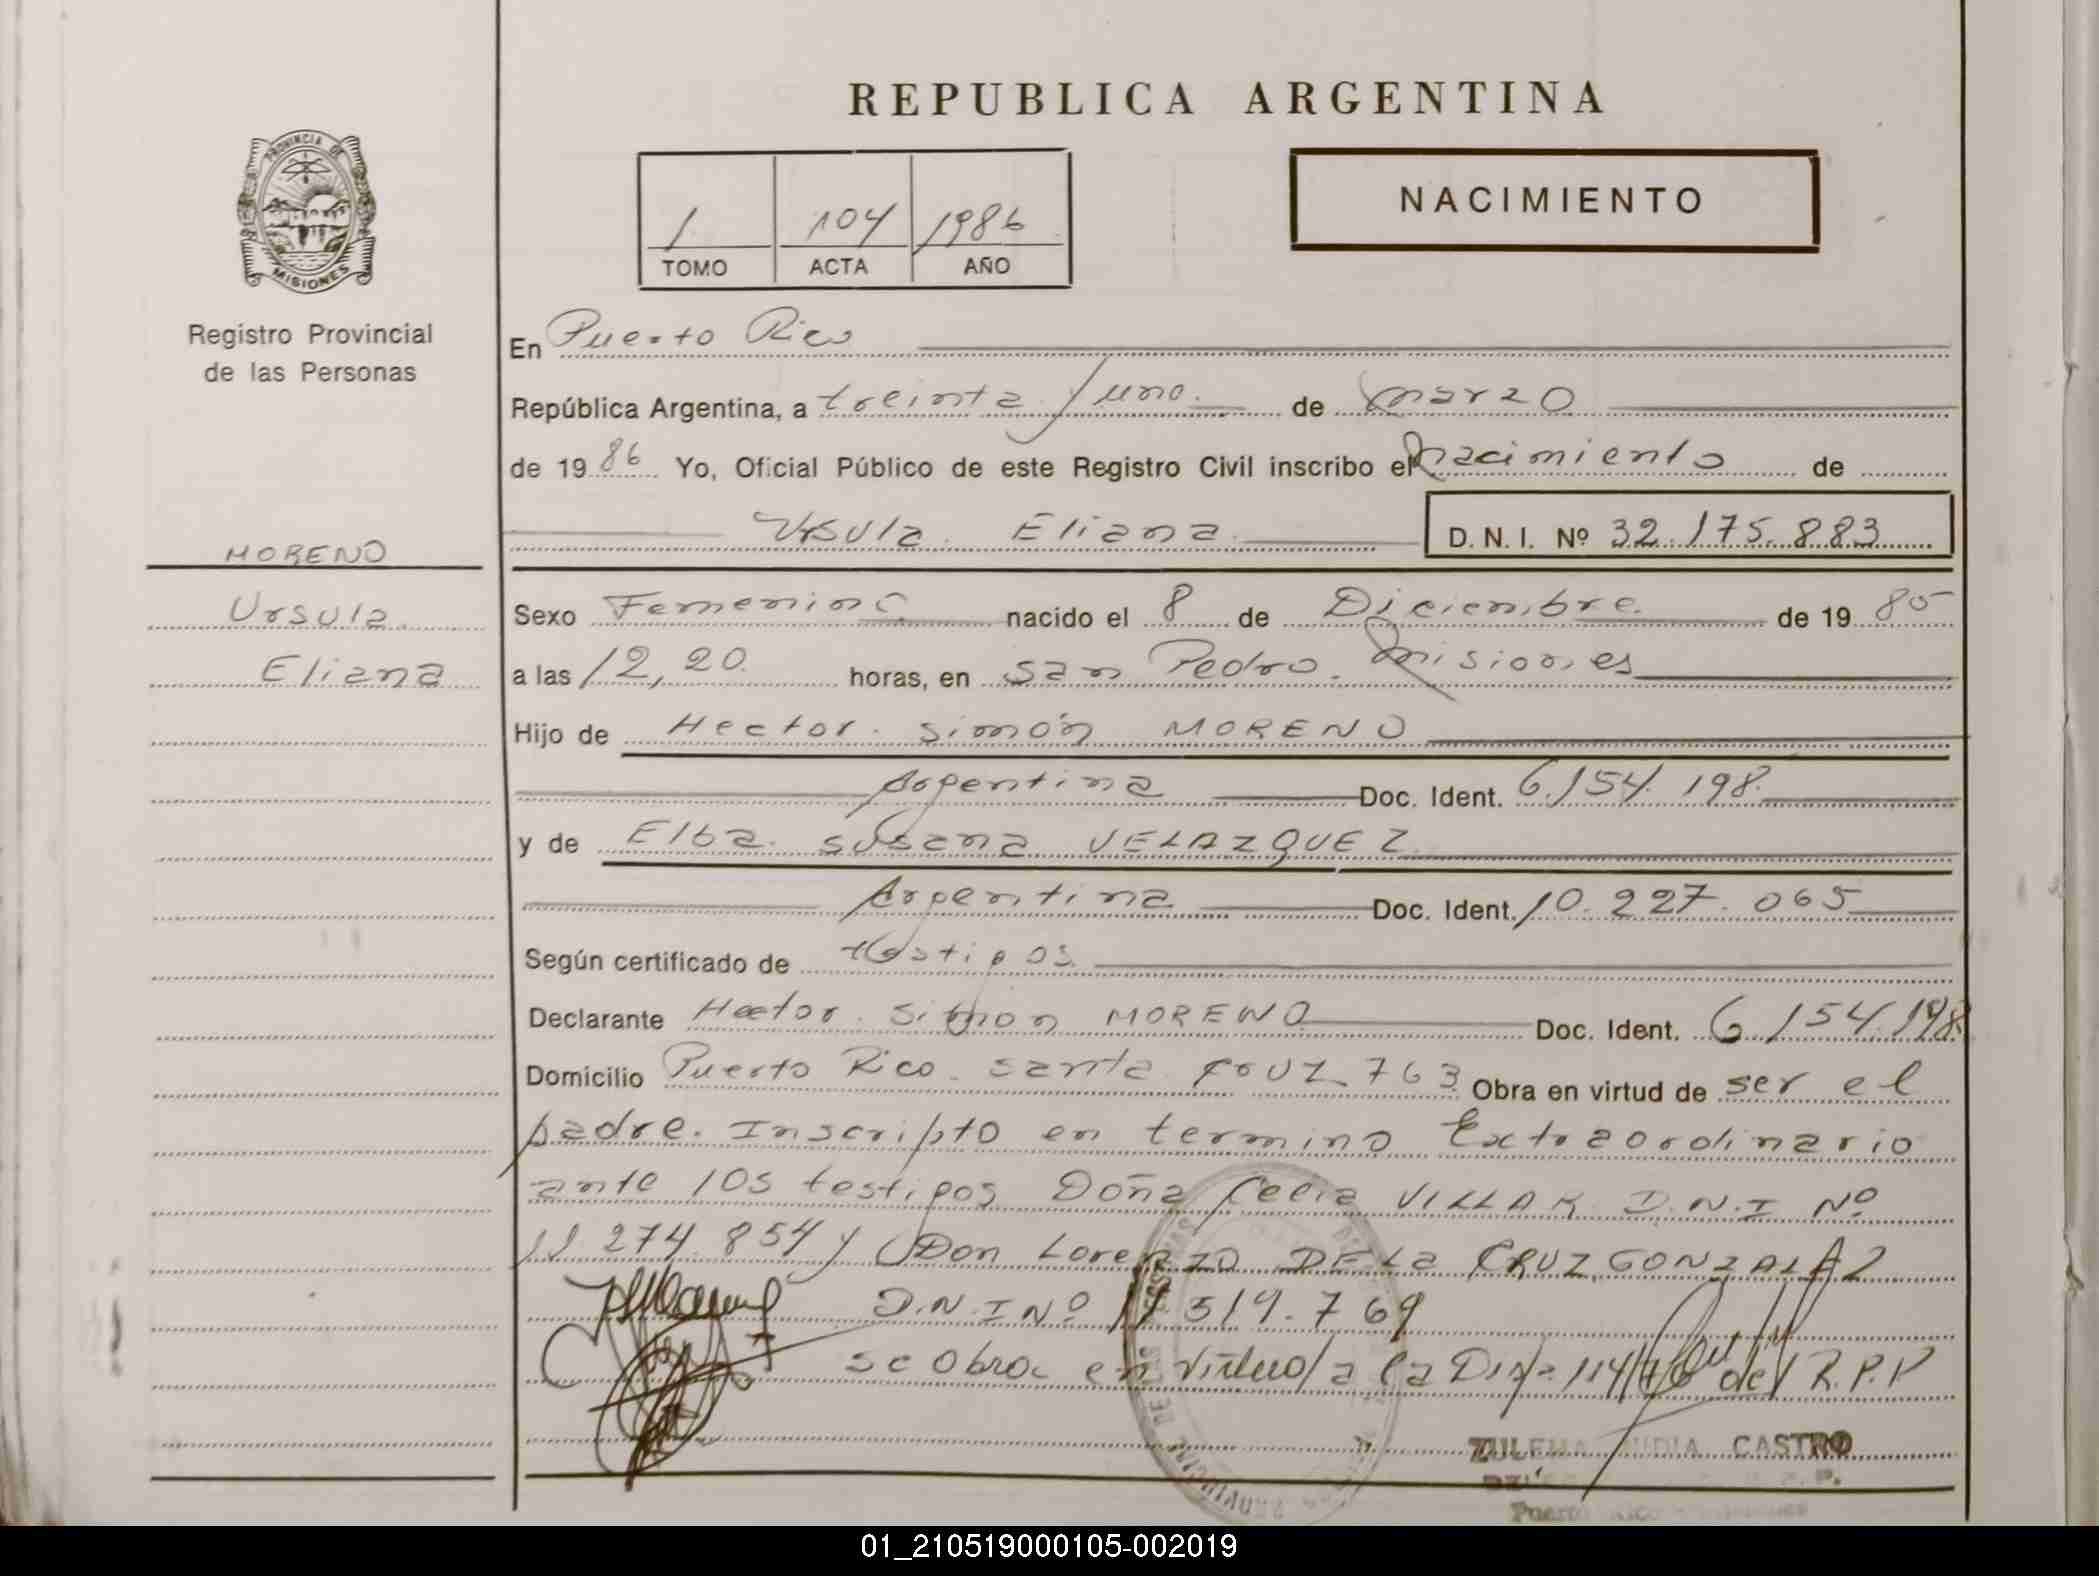 REPUBLICA ARGENTINA
PROVINCIA DE
MISIONES
Registro Provincial
de las Personas
1 104 1986
TOMO ACTA AÑO
NACIMIENTO
MORENO
Ursula
Eliana
En Puerto Rico
República Argentina, a treinta y uno. de marzo
de 19 86 Yo, Oficial Público de este Registro Civil inscribo el nacimiento de
Ursula Eliana D. N. I. Nº 32.175.883
Sexo Femenino nacido el 8 de Diciembre de 19 85
a las 12,20 horas, en San Pedro. Misiones
Hijo de Hector Simón MORENO
Argentina Doc. Ident. 6.154.198
y de Elba Susana VELAZQUEZ
Argentina Doc. Ident. 10.227.065
Según certificado de testigos
Declarante Hector Simon MORENO Doc. Ident. 6.154.198
Domicilio Puerto Rico. Santa Cruz 763 Obra en virtud de ser el
padre. Inscripto en termino Extraordinario
ante los testigos Doña Celia VILLAR D.N.I Nº
11 274 854 y Don Lorenzo DE La CRUZ GONZALEZ
D.N.I Nº 11 519.769
se Obra en Virtud a la Disp del R.P.P
CASTRO
01_210519000105-002019